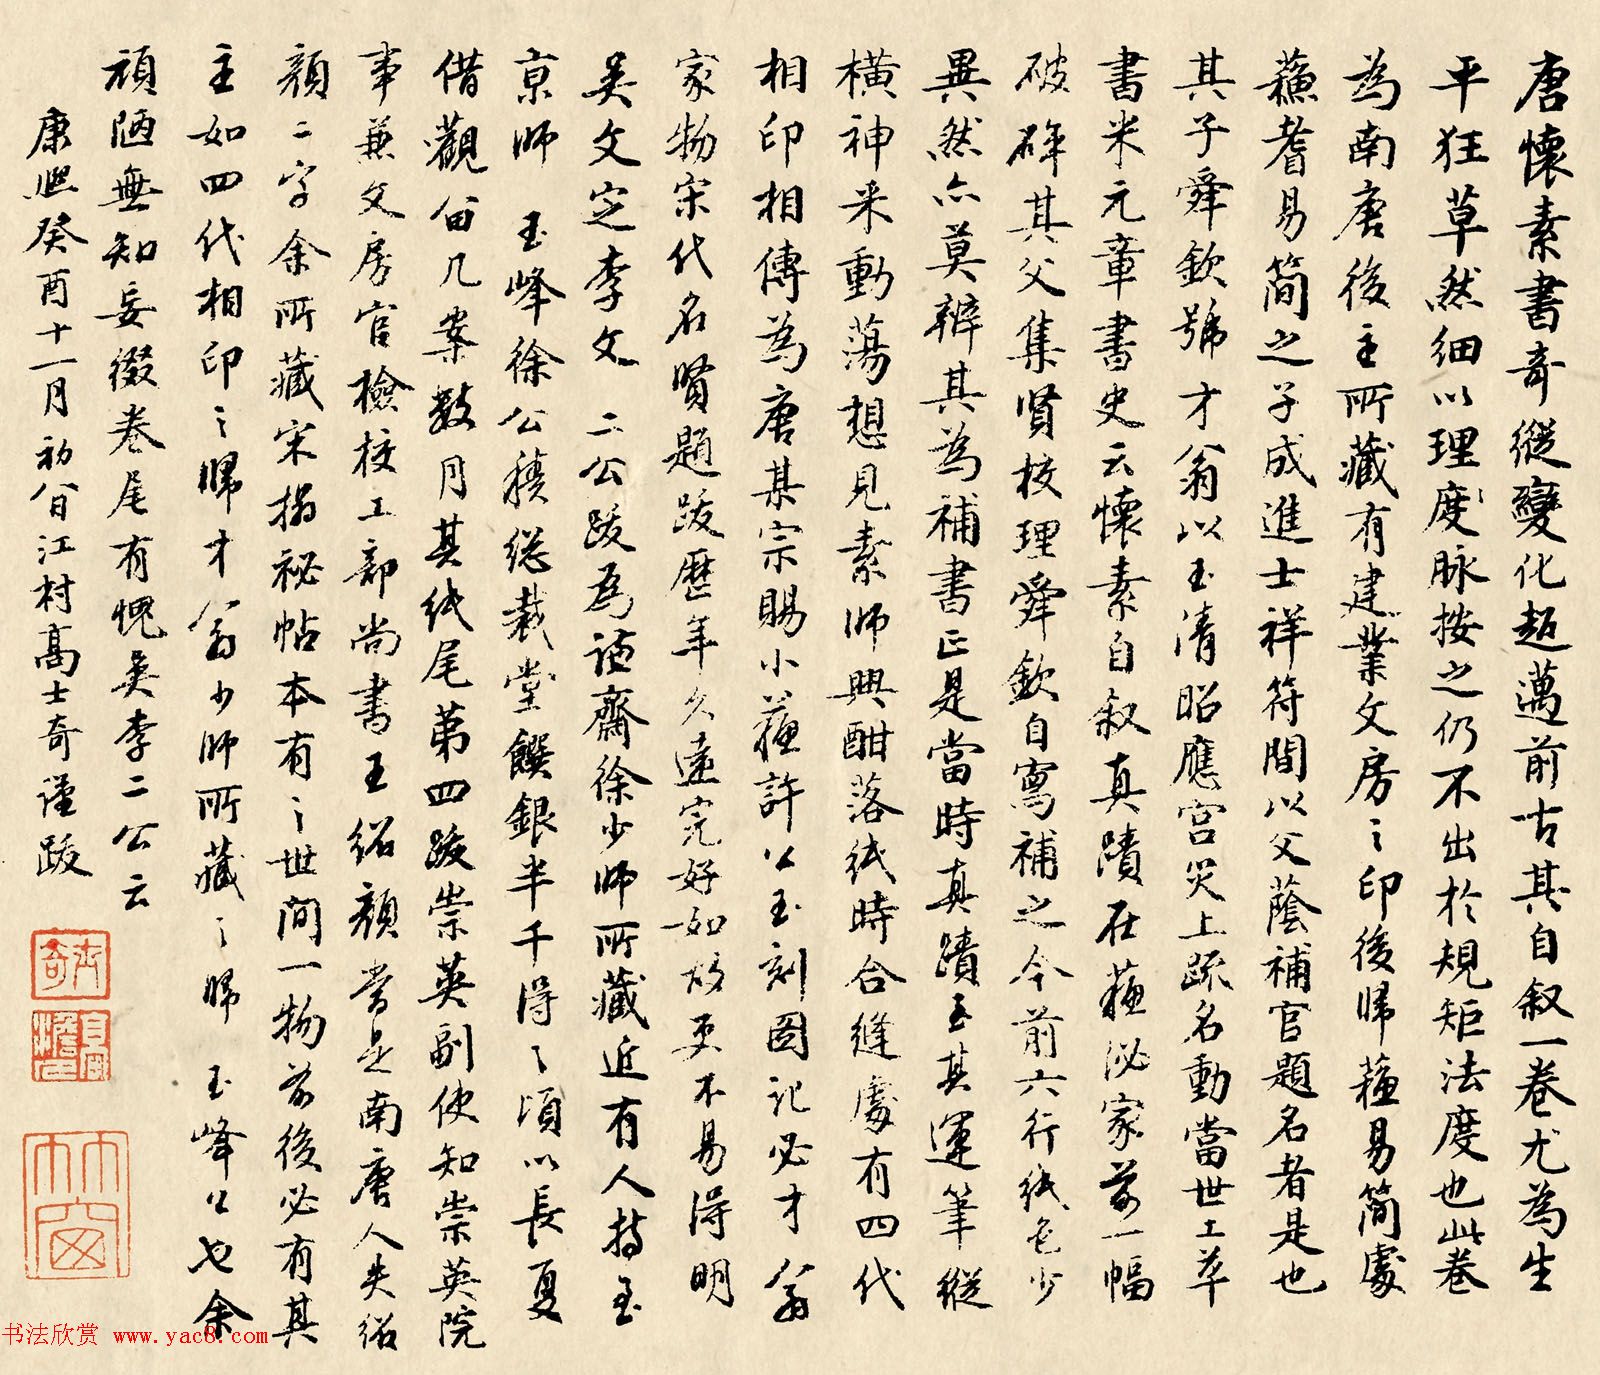 唐懷素書奇縱變化超邁前古其自叙一卷尤為生
平狂草然細以理度脉按之仍不出於規矩法度也此卷
為南唐後主所藏有建業文房之印後歸蘇易簡處
蘇耆易簡之子成進士祥符間以父蔭補官題名者是也
其子舜欽號才翁以玉清昭應宮災上疏名動當世工草
書米元章書史云懷素自叙真蹟在蘇泌家前一幅
破碎其父集賢校理舜欽自寫補之今前六行紙色少
異然亦莫辨其為補書正是當時真蹟至其運筆縱
橫神采動蕩想見素師興酣落紙時合縫處有四代
相印相傳為唐某宗賜小蘇許公玉刻圖記必才翁
家物宋代名賢題跋歷年久遠完好如故更不易得明
吳文定李文 二公跋為 齋徐少師所藏近有人持至
京師 玉峰徐公 總裁堂饌銀半千得之頃以長夏
借觀留几案數月其紙尾第四跋崇英副使知崇英院
事兼文房官檢校工部尚書王紹顏當是南唐人失紹
顏二字余所藏宋搨祕帖本有之世間一物前後必有其
主如四代相印之歸才翁少師所藏之歸 玉峰公也余
頑陋無知妄綴卷尾有愧吳李二公云
康熙癸酉十一月初八日江村高士奇謹跋
士奇
竹窗
书法欣赏 www.yac8.com